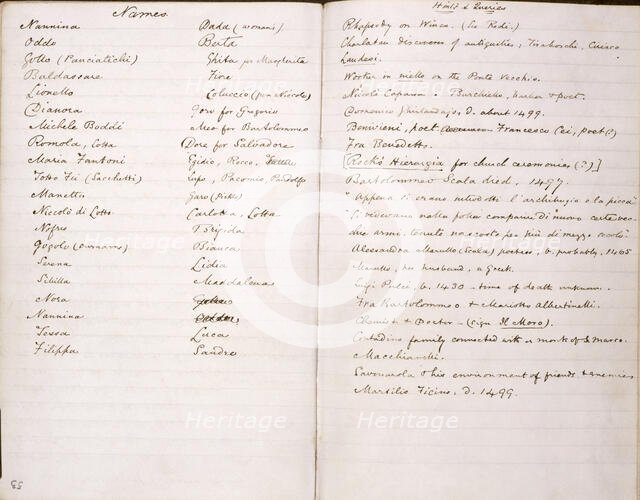 Names
Nannina
Oddo
Gollo (Panciatichi)
Baldassare
Lionello
Dianora
Michele Boddi
Romola, Cotta
Maria Fantoni
Totto Tei (Sacchetti)
Manetto
Niccolò di Lotto
Nofri
Gogolo (surname)
Serena
Sibilla
Nora
Nannina
Tessa
Filippa
Dada (woman's)
Berta
Ghita per Margherita
Fiore
Coluccio (for Niccolo)
Goro for Gregorio
Meo for Bartolommeo
Dore for Salvadore
Egidio, Rocco,
Lupo, Pacomio, Pandolfo
Garo
Carlotta, Lotta
Brigida
Bianca
Lidia
Maddalena
Luca
Sandro
55
Hints & Queries
Rhapsody on Wines. (See Redi.)
Charlatan discoverer of antiquities, Tiraboschi, Ciriaco
Laudesi.
Worker in niello on the Ponte Vecchio.
Niccolò Caparra – Burchiello, barber & poet.
Domenico Ghirlandajo, d. about 1499.
Benivieni, poet, Francesco Cei, poet (?)
Fra Benedetto.
[Rock's Hierurgia for church ceremonies (?)]
Bartolommeo Scala died, 1497.
"Appena si erano introdotti l'archibugio e la picca
si vedevano nelle poche compagnie di nuovo
armi, tenute nascoste per più di mezzo secolo."
Alessandra Marullo (Scala) poetess, b. probably, 1465
Marullo, her husband, a Greek.
Luigi Pulci, b. 1430 – time of death unknown.
Fra Bartolommeo & Mariotto Albertinelli.
Chemist & Doctor – (sign Il Moro).
Contadino family connected with a monk of S. Marco.
Macchiavelli.
Savonarola & his environment of friends & enemies
Marsilio Ficino, d. 1499.
Heritage
Heritage
Heritage
Heritage
Heritage
Heritage